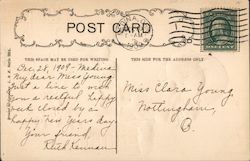 POST CARD
THIS SPACE MAY BE USED FOR WRITING
THIS SIDE FOR THE ADDRESS ONLY.
Dec. 28, 1909 - Medina
My dear Miss Young
Just a line to wish
you a
closed by a
Happy New Years day
Your friend,
Miss Clara Young
Nottingham,
O.